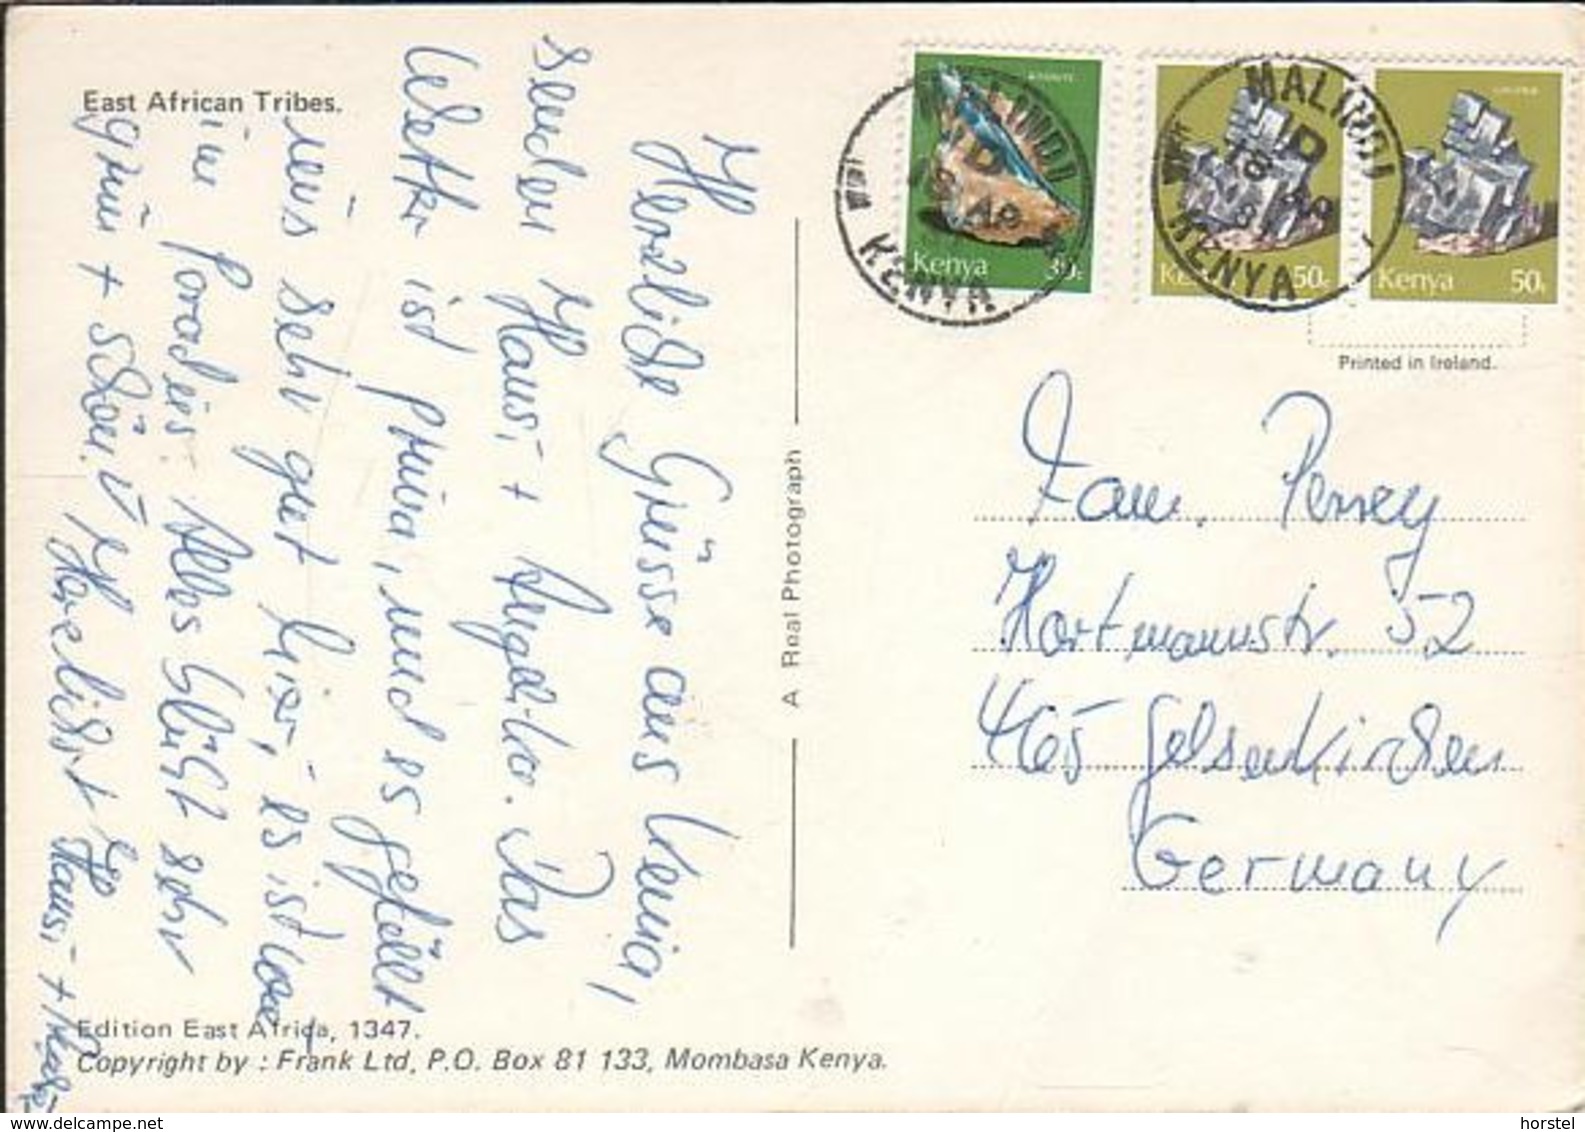 East African Tribes.
Herzliche Grüsse aus Kenia,
senden Hansi + Angelika. Das
Wetter ist prima, und es gefällt
uns sehr gut hier, es ist wie
im Paradies. Alles blüht sehr
grün + schön. Herzlichst
Hansi +
A Real Photograph
MALINDI
KENYA
Kenya 30c
MALINDI
D
18
KENYA
50c
Kenya 50c
Printed in Ireland.
Fam.
Hartmannstr. 52
465 Gelsenkirchen
Germany
Edition East Africa, 1347.
Copyright by : Frank Ltd, P.O. Box 81 133, Mombasa Kenya.
www.delcampe.net
horstel